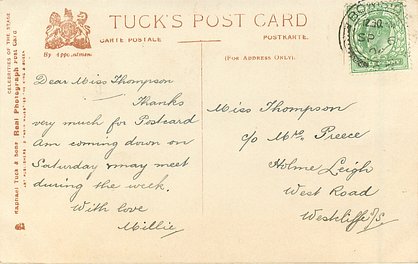 TUCK'S POST CARD
CARTE POSTALE
POSTKARTE.
By Appointment
(FOR ADDRESS ONLY).
CELEBRITIES OF THE STAGE
RAPHAEL TUCK & SONS Real Photograph POST CARD
Dear Miss Thompson
Thanks
very much for Postcard
Am coming down on
Saturday & may meet
during the week.
With love
Millie
Miss Thompson
c/o Mrs Preece
Holme Leigh
West Road
Westcliffe o/S